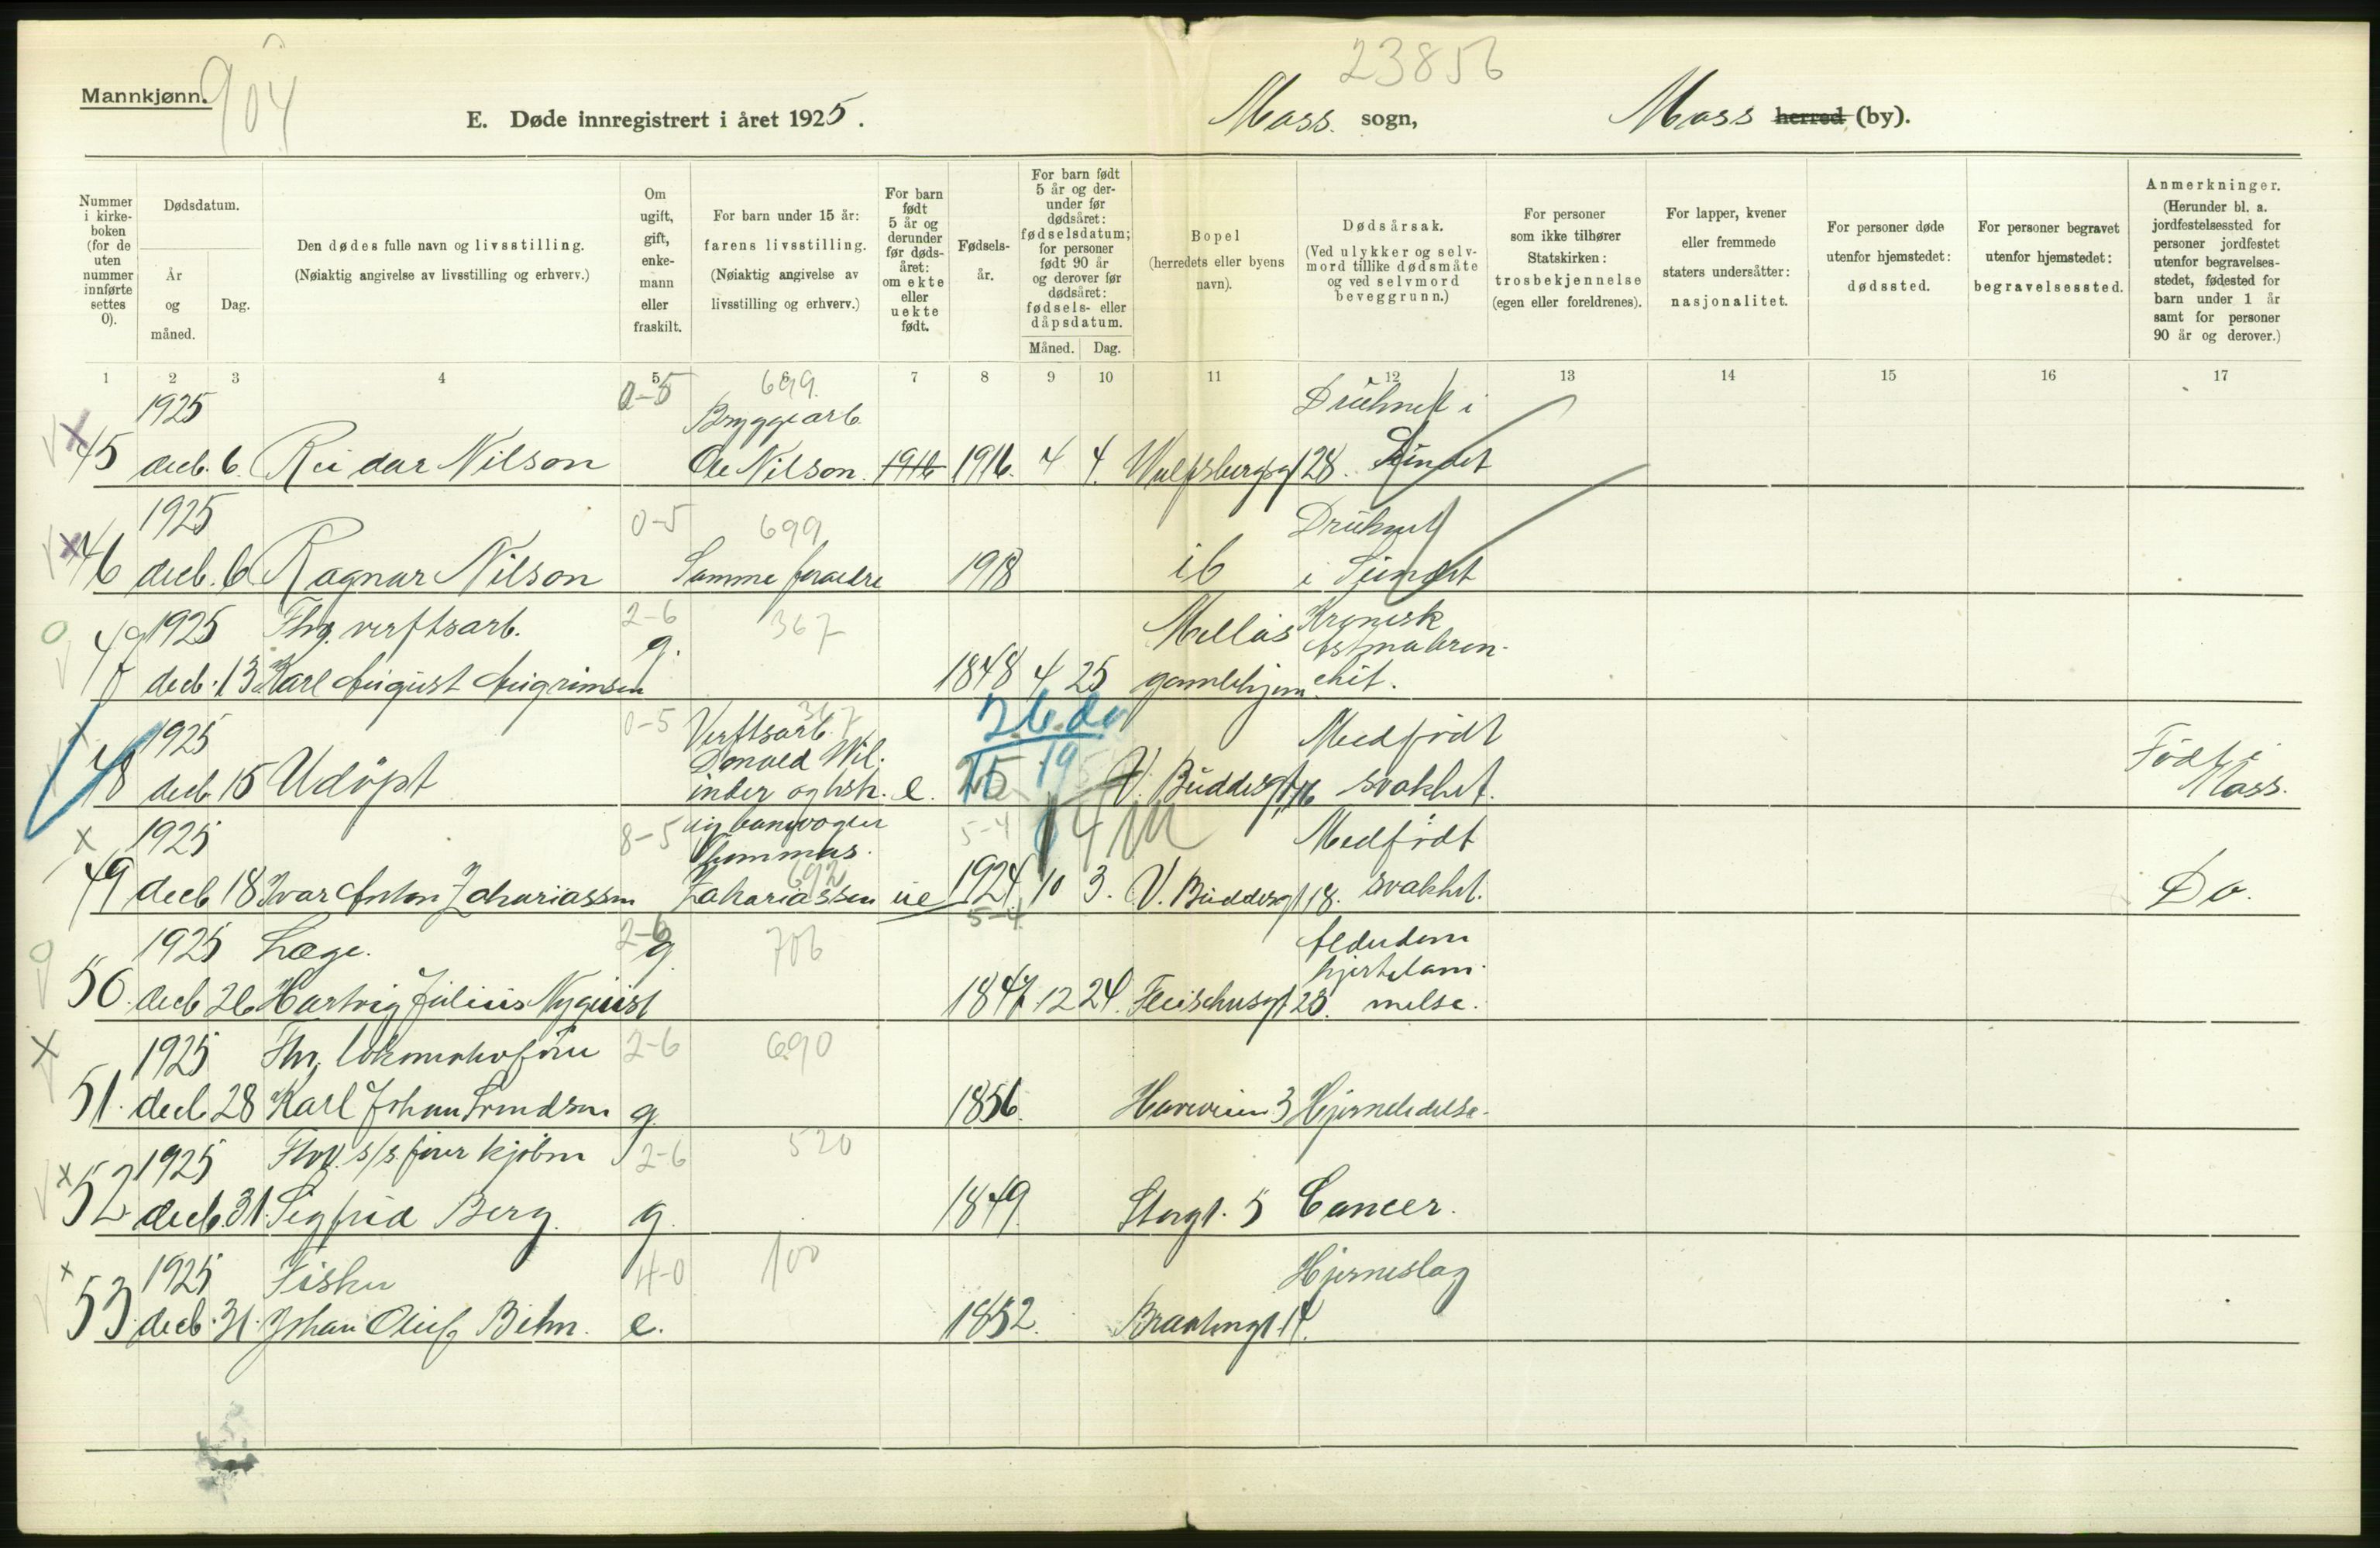 Mannkjønn.
904
23856
E. Døde innregistrert i året 1925.
Moss. sogn,
Moss herred (by).
Nummer i kirke-boken (for de uten nummer innførte settes 0).
Dødsdatum.
År og måned.
Dag.
Den dødes fulle navn og livsstilling.
(Nøiaktig angivelse av livsstilling og erhverv.)
Om ugift, gift, enke-mann eller fraskilt.
For barn under 15 år: farens livsstilling.
(Nøiaktig angivelse av livsstilling og erhverv.)
For barn født 5 år og derunder før døds-året: om ekte eller uekte født.
Fødsels-år.
For barn født 5 år og der-under før dødsåret: fødselsdatum; for personer født 90 år og derover før dødsåret: fødsels- eller dåpsdatum.
Måned.
Dag.
Bopel
(herredets eller byens navn).
Dødsårsak.
(Ved ulykker og selv-mord tillike dødsmåte og ved selvmord beveggrunn.)
For personer som ikke tilhører Statskirken: trosbekjennelse (egen eller foreldrenes).
For lapper, kvener eller fremmede staters undersåtter: nasjonalitet.
For personer døde utenfor hjemstedet: dødssted.
For personer begravet utenfor hjemstedet: begravelsessted.
Anmerkninger.
(Herunder bl. a. jordfestelsessted for personer jordfestet utenfor begravelses-stedet, fødested for barn under 1 år samt for personer 90 år og derover.)
1 2 3 4 5 6 7 8 9 10 11 12 13 14 15 16 17
1925 0-5 699 Bryggearb. Druknet i
45 decb. 6. Reidar Nilson Ole Nilson. 1916 1916. 4 4. Wulfsbergsgt 28. Sundet
1925 0-5 699 Druknet
46 decb. 6 Ragnar Nilson Samme foraeldre 1918 ib i Sundet
1925 Fhv. verftsarb. 2-6 g. 367 Mellos Kronisk astmabron-
decb. 13 Karl August 1848 4 25 gamlehjem chit.
1925 0-5 367 Verftsarb. 26. de Medfødt Født i
48 decb 15 Udöpt e. V. Buddesgt 16 svakhet. Moss.
1925 8-5 5-4 Medfødt
49 decb 18 Ivar Anton Zahariassen Zakariassen 692 ue 1924. 10 3. V. Buddesgt 18. svakhet. Do.
1925 Læge. 2-6 g. 706 5-4 Alderdom hjertelam-
50. decb 26 Hartvig Julius Nyquist 1847. 12 24. Fleischersgt 28. melse.
1925 Fhv. lokomotivfører 2-6 690
51. decb 28 Karl Johan g. 1856. 3 Hjernelidelse.
1925 Fhv. s/s fører 2-6 520
52 decb 31. Sigfrid Berg. g. 1849. Storgt. 5 Cancer.
1925 Fisker 4-0 100 Hjerneslag
53. decb. 31. Johan Oluf Behn. e. 1852. 14.